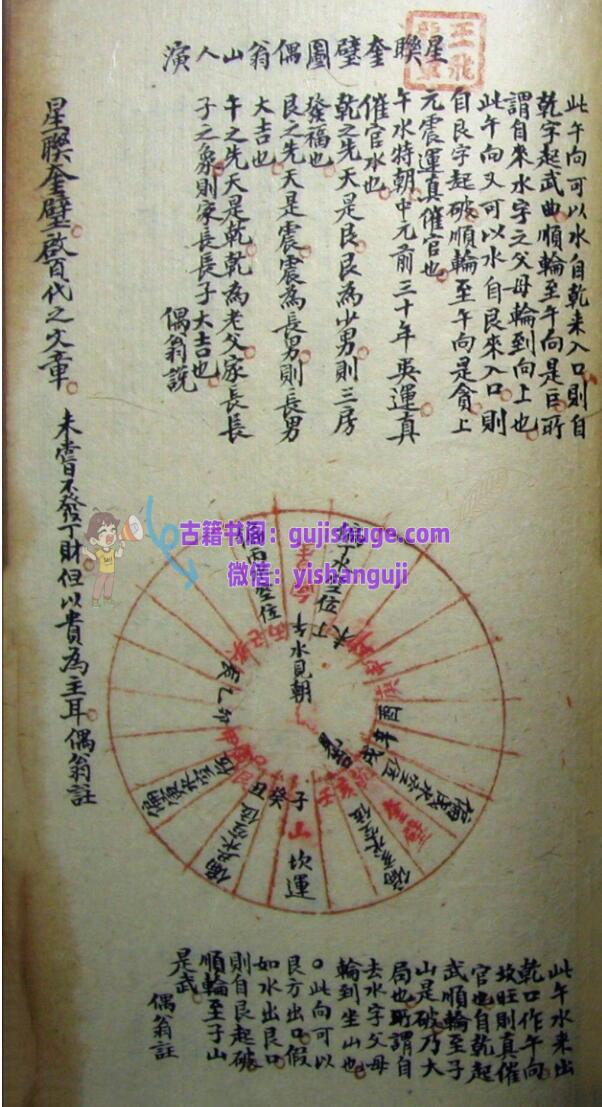 星聯奎璧圖偶翁山人演
此午向可以水自乾来入口則自
乾字起武曲順輪至午向是巨所
謂自来水字之父母輪到向上也
此午向又可以水自艮來入口則
自艮字起破順輪至午向是貪上
元震運真催官也
午水特朝中元前三十年巽運真
催官水也
乾之先天是艮艮為少男則三房
發福也
艮之先天是震震為長男則長男
大吉也
午之先天是乾乾為老父家長長
子之象則家長長子大吉也
偶翁説
星聯奎璧啟百代之文章
未嘗不發丁財但以貴為主耳偶翁註
古籍书阁：gujishuge.com
微信：yishanguji
午水見朝
未丁
丙
辰乙卯
酉辛戌
壬亥
丑癸子
山
坎運
此午水来出
乾口作午向
故旺則真催
官也自乾起
武順輪至子
山是破乃大
局也所謂自
去水字父母
輪到坐山也
○此向可以
艮方出口假
如水出艮口
則自艮起破
順輪至子山
是武
偶翁註